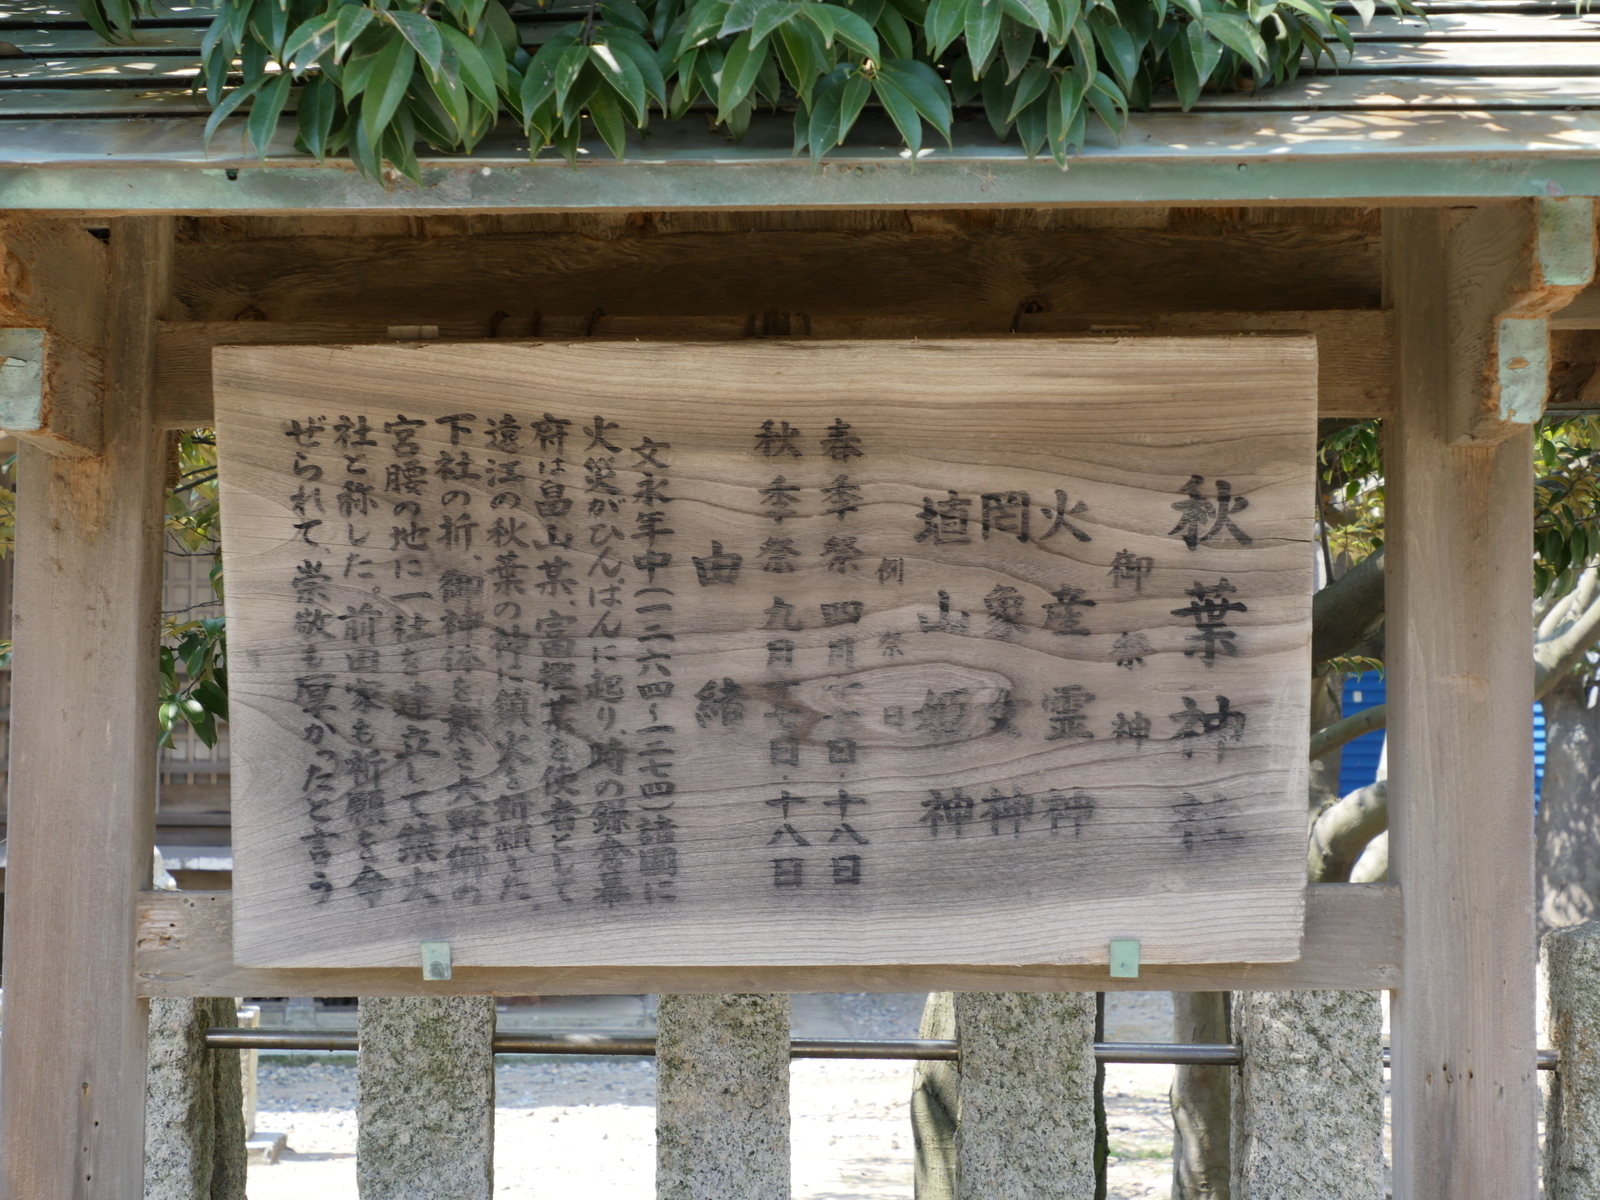 秋葉神社
御祭神
火産霊神
罔象女神
埴山姫神
例祭日
春季祭 四月十七日・十八日
秋季祭 九月十七日・十八日
由緒
文永年中(一二六四~一二七四)諸国に
火災がひんぱんに起り、時の鎌倉幕
府は畠山某、富樫某を使者として
遠江の秋葉の神に鎮火を祈願した。
下社の折、御神体を裏き大野郷の
宮腰の地に一社を建立して鎮火
社と称した。前田家も祈願を命
ぜられて、崇敬も厚かったと言う